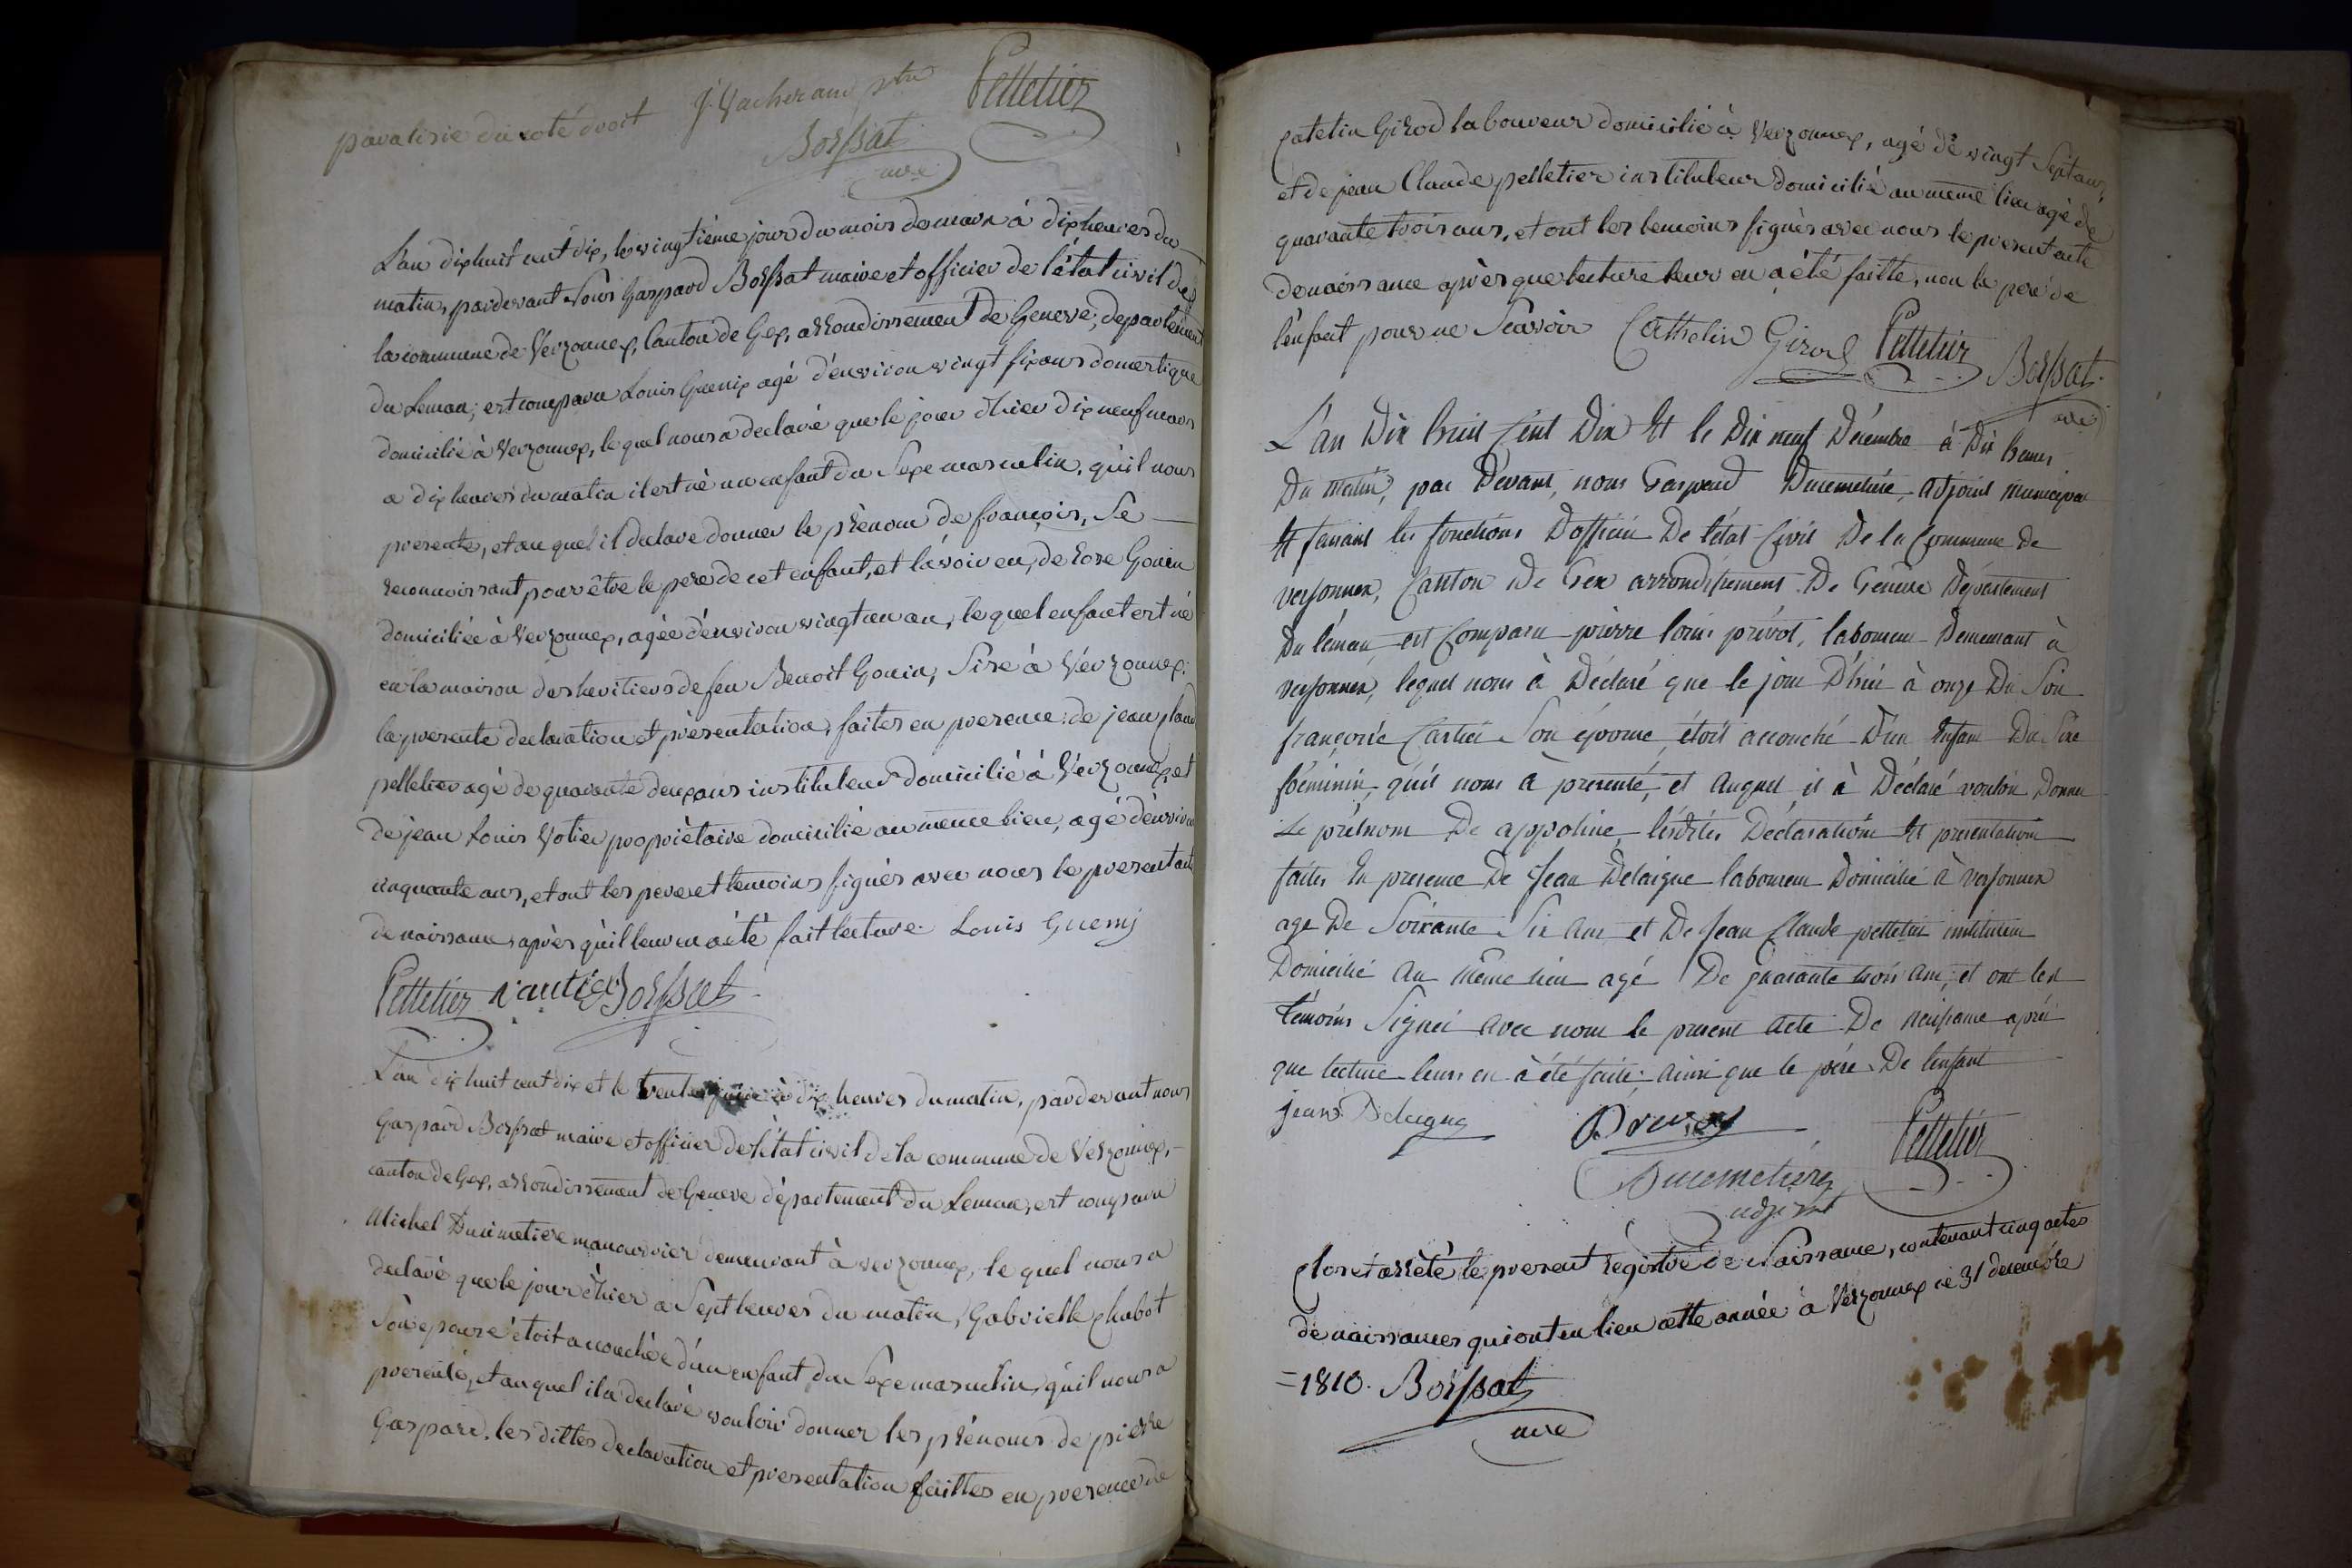 paralisie du coté droit J. Vacherand ptre Pelletier
Boissat
mre
L'an dix huit cent dix, le vingtième jour du mois de mars à dix heures du
matin, pardevant Nous Gaspard Boissat maire et officier de l'état civil de
la commune de Verzonnex, Canton de Gex, arrondissement de Geneve, departement
du Leman; est comparu Louis Guenix agé d'environ vingt six ans domestique
domicilié à Verzonnex, le quel nous a declaré que le jour d'hier dix neuf mars
a dix heures du matin il est né un enfant du Sexe masculin, qu'il nous
presente, et au quel il declare donner le prénom de françois, Se
reconnoissant pour être le pere de cet enfant, et l'avoir eu, de Rose Gonin
domiciliée à Verzonnex, agée d'environ vingt un an, le quel enfant est né
en la maison des heritiers de feu Benoit Gonin, Sise à Verzonnex;
la presente declaration et présentation, faites en presence: de jean Claude
pelletier agé de quarante deux ans instituteur domicilié à Verzonnex, et
de jean Louis Votier propriètaire domicilié au meme lieu, agé d'environ
cinquante ans, et ont les pere et temoins signès avec nous le present acte
de naissance, après qu'il leur en a été fait lecture. Louis Guenix
Pelletier vautier Boissat
L'an dix huit cent dix et le trente à dix heures du matin, pardevant nous
Gaspard Boissat maire et officier de l'état civil de la commune de Verzonnex,
canton de Gex, arrondissement de Geneve département du Leman, est comparu
Michel Ducimetiere manouvrier demeurant à verzonnex, le quel nous a
declaré que le jour d'hier a Sept heures du matin, Gabrielle Chabot
Son epouse étoit accouchée d'un enfant du Sexe masculin, qu'il nous a
presenté, et au quel il a declaré vouloir donner les prénoms de pierre
Gaspard. les dittes declaration et presentation faittes en presence de
Catelin Girod laboureur domicilié à Verzonnex, agé de vingt Sept ans,
et de jean Claude pelletier instituteur domicilié au meme lieu agé de
quarante trois ans, et ont les temoins signès avec nous le present acte
de naissance après que lecture leur en a été faitte, non le pere de
l'enfant pour ne Scavoir Cathelin Girod Pelletier Boissat
mre
L'an Dix huit Cent Dix Et le Dix neuf Décembre à Dix heures
Du matin, par Devant, nous Gaspard Ducimetière, adjoint municipal
Et faisant les fonctions D'officier De l'état Civil De la Commune de
versonnex, Canton De Gex arrondissement De Genève Département
Du léman, est Comparu pierre louis prévot, laboureur Demeurant à
versonnex, lequel nous à Déclaré que le jour D'hier à onze Du Soir
françoise Cartier Son épouse, étoit accouché D'un Enfant Du Sexe
féminin, qu'il nous à presenté, et auquel il à Déclaré vouloir Donner
Le prénom De appoline, lesdites Déclaration Et presentation
faites En presence De Jean Delaigue laboureur Domicilié à versonnex
age De Soixante Six ans et De Jean Claude pelletier instituteur
Domicilié au même lieu agé De quarante trois ans, et ont les
témoins Signés avec nous le present acte De naissance après
que lecture leurs en à été faite; ainsi que le père De l'enfant
jean Delaigue Prevot Pelletier
Ducimetiere
adjoint
Clos et arrêté le present registre de Naissance, contenant cinq actes
de naissances qui ont eu lieu cette année à Verzonnex ce 31 decembre
=1810. Boissat
mre